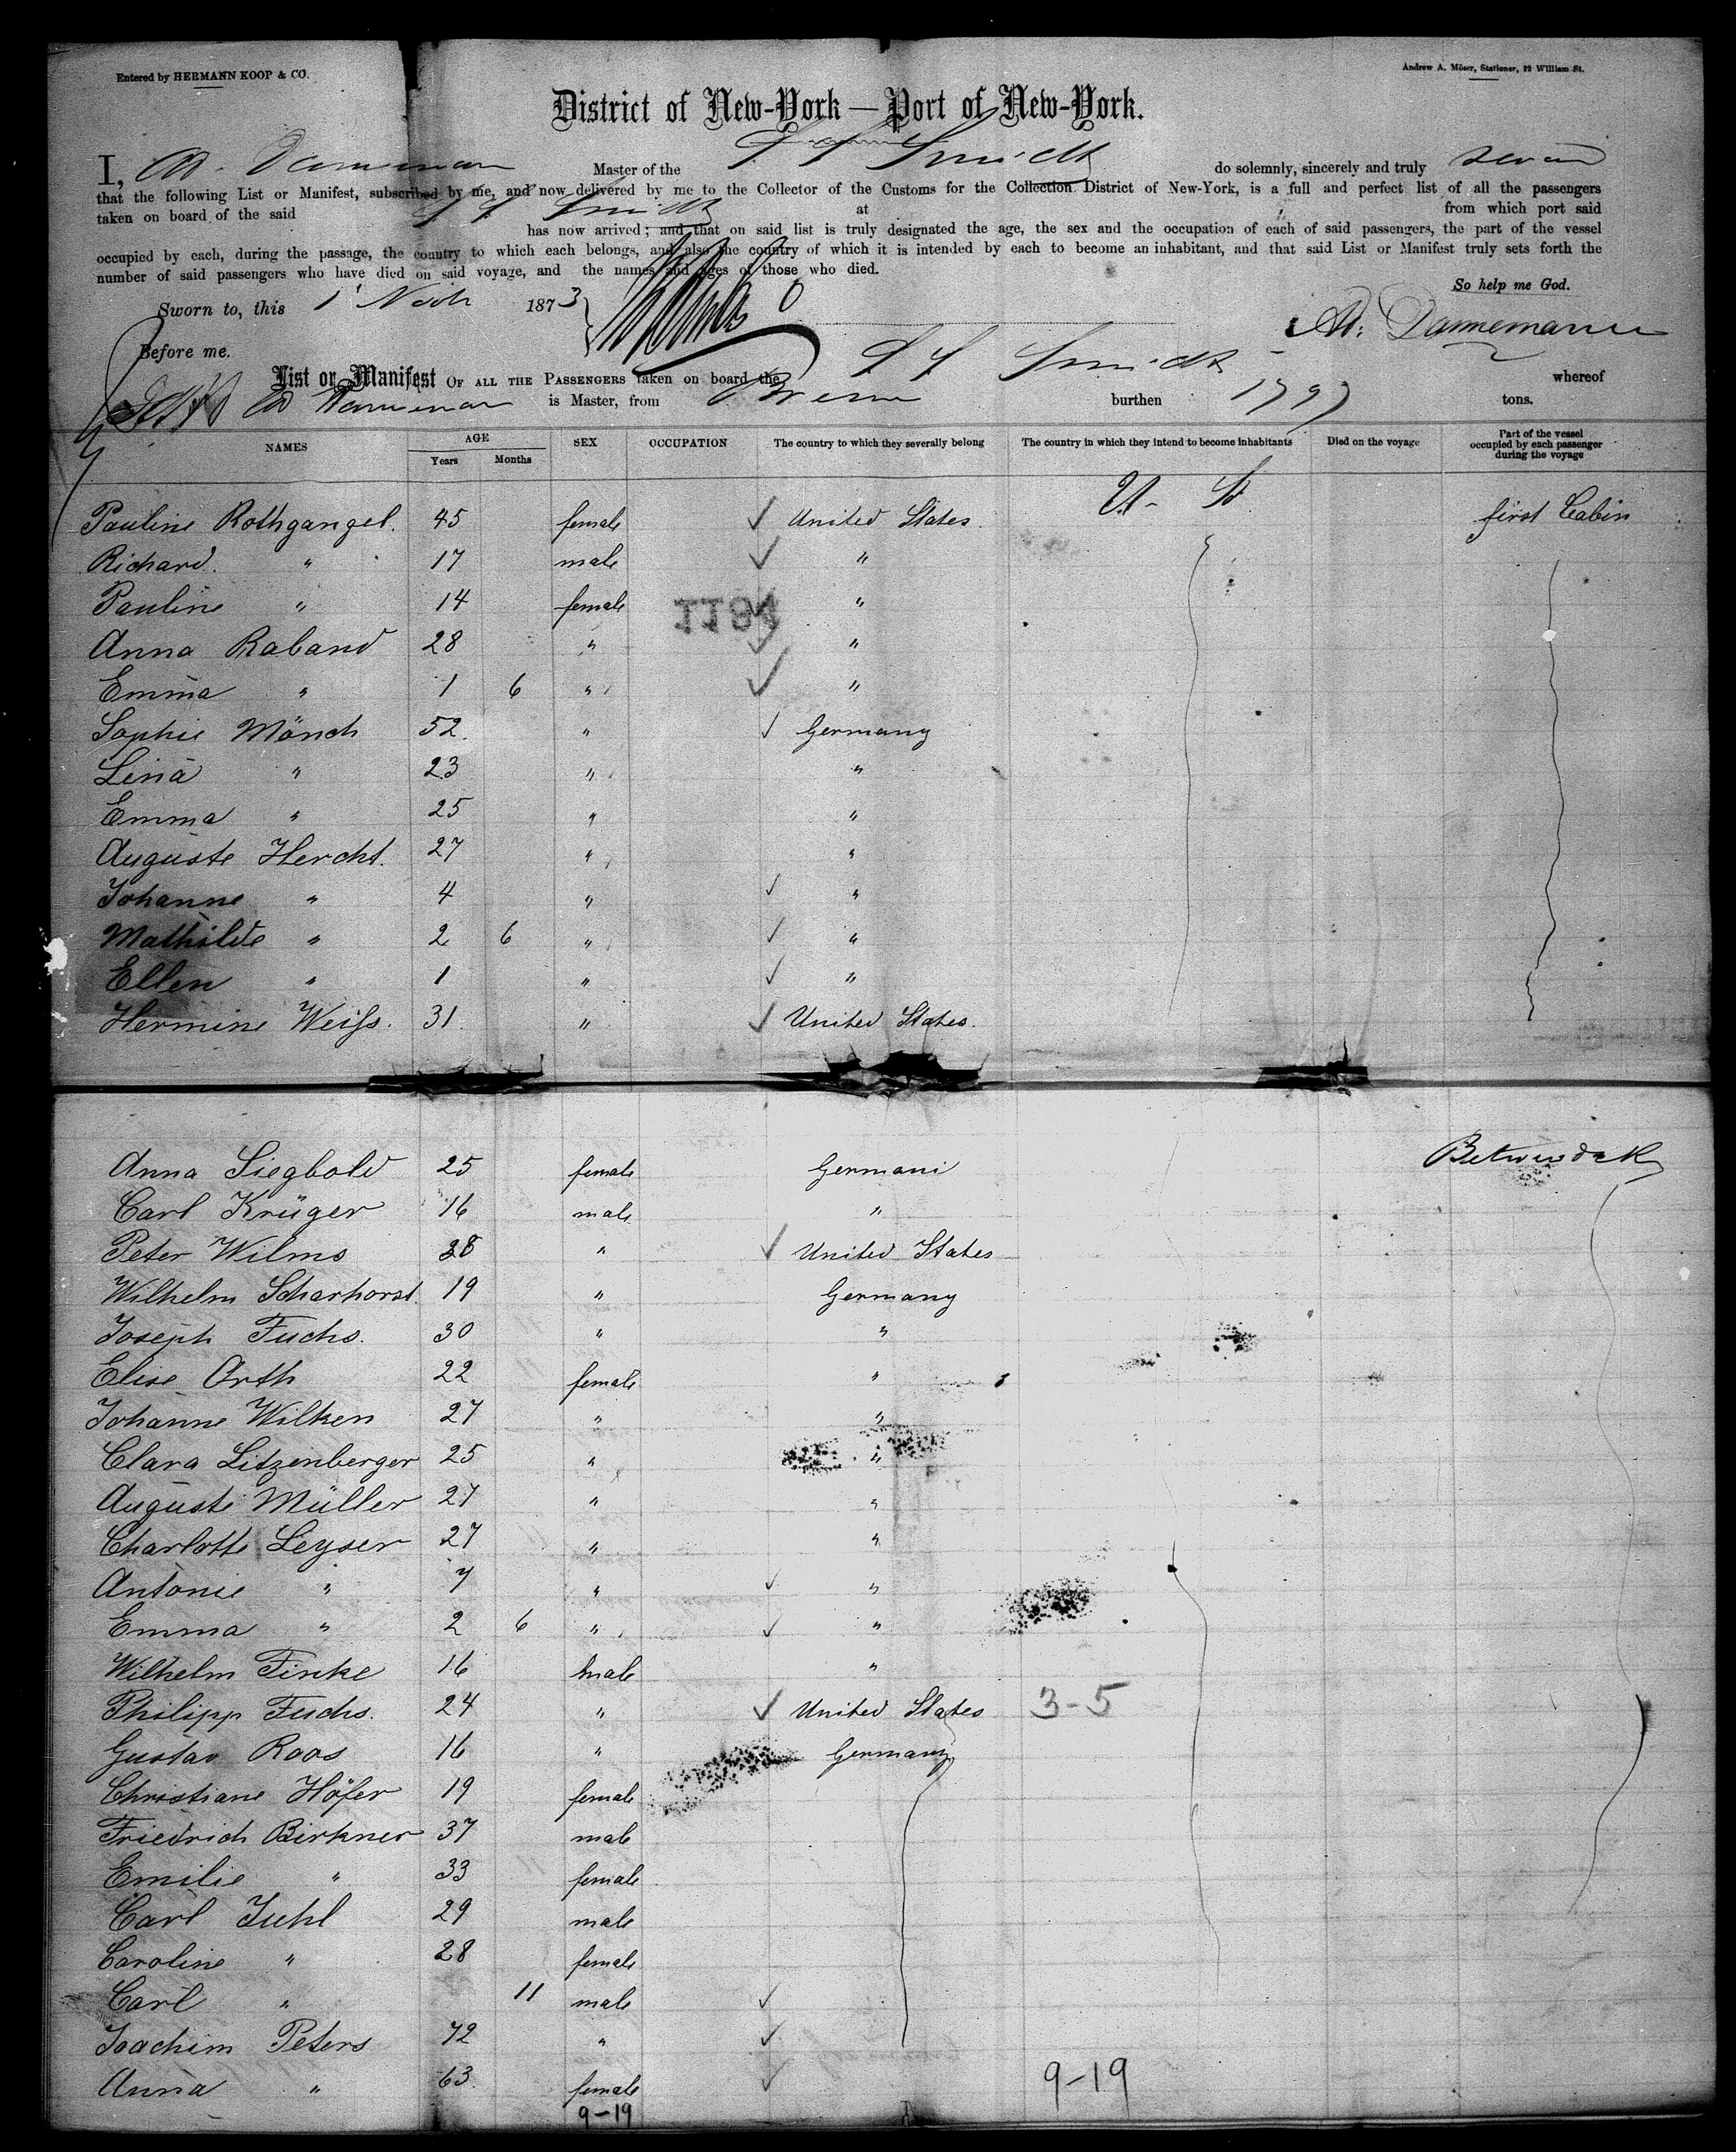 Entered by HERMANN KOOP & CO.
Andrew A. Möser, Stationer, 22 William St.
District of New-York — Port of New-York.
I, Ad. Danneman Master of the S S Smidt do solemnly, sincerely and truly swear
that the following List or Manifest, subscribed by me, and now delivered by me to the Collector of the Customs for the Collection District of New-York, is a full and perfect list of all the passengers
taken on board of the said S S Smidt at from which port said
has now arrived; and that on said list is truly designated the age, the sex and the occupation of each of said passengers, the part of the vessel
occupied by each, during the passage, the country to which each belongs, and also the country of which it is intended by each to become an inhabitant, and that said List or Manifest truly sets forth the
number of said passengers who have died on said voyage, and the names and ages of those who died.
So help me God.
Sworn to, this 1 Nov 1873
Ad. Dannemann
Before me.
List or Manifest OF ALL THE PASSENGERS taken on board the S S Smidt whereof
Ad Danneman is Master, from Bremen burthen 1797 tons.
NAMES AGE SEX OCCUPATION The country to which they severally belong The country in which they intend to become inhabitants Died on the voyage Part of the vessel occupied by each passenger during the voyage
Years Months
U. St
Pauline Rothgangel. 45 female United States first Cabin
Richard. " 17 male "
Pauline " 14 female "
1184
Anna Raband 28 " "
Emma " 1 6 " "
Sophie Mönch 52. " Germany
Lina " 23 " "
Emma " 25 " "
Auguste Hercht. 27 " "
Johanne " 4 " "
Mathilde " 2 6 " "
Ellen " 1 " "
Hermine Weiſs. 31 " United States.
Anna Siegbold 25 female Germani Betweendek
Carl Krüger 16 male "
Peter Wilms 38 " United States
Wilhelm Scharhorst. 19 " Germany
Joseph Fuchs. 30 " "
Elise Orth 22 female "
Johanne Wilken 27 " "
Clara Litzenberger 25 " "
Auguste Müller 27 " "
Charlotte Leyser 27 " "
Antonie " 7 " "
Emma " 2 6 " "
Wilhelm Finke 16 male "
Philipp Fuchs. 24 " United States 3-5
Gustav Roos 16 " Germany
Christiane Höfer 19 female
Friedrich Birkner 37 male
Emilie " 33 female
Carl Juhl 29 male
Caroline " 28 female
Carl " 11 male
Joachim Peters 72 "
Anna " 63 female 9-19
9-19